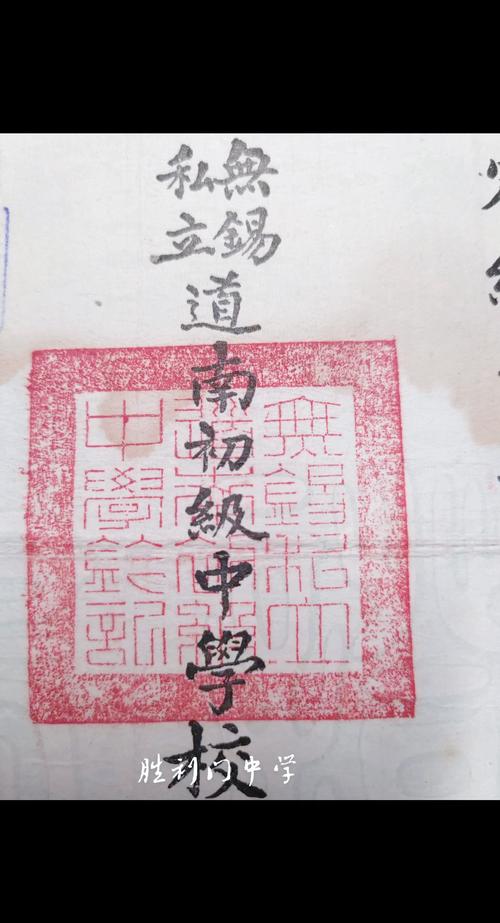 無錫
私立
道南初級中學校
無錫私立
道南初級
中學鈐記
胜利门中学